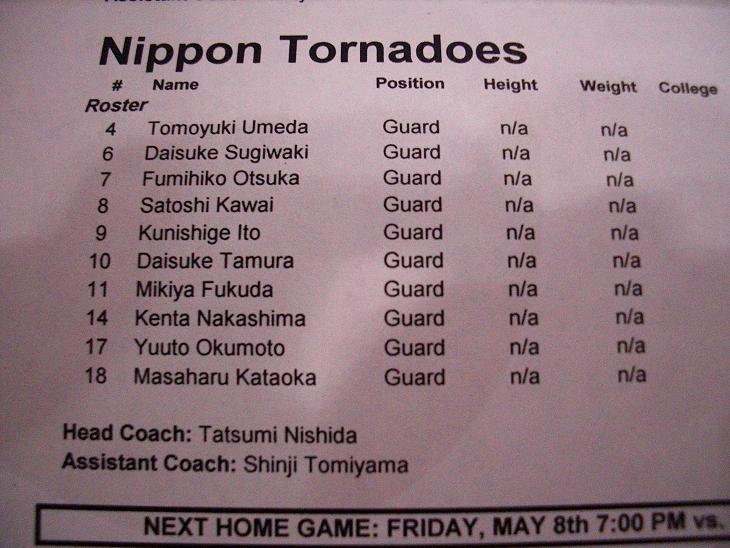 Nippon Tornadoes
# Name Position Height Weight College
Roster
4 Tomoyuki Umeda Guard n/a n/a
6 Daisuke Sugiwaki Guard n/a n/a
7 Fumihiko Otsuka Guard n/a n/a
8 Satoshi Kawai Guard n/a n/a
9 Kunishige Ito Guard n/a n/a
10 Daisuke Tamura Guard n/a n/a
11 Mikiya Fukuda Guard n/a n/a
14 Kenta Nakashima Guard n/a n/a
17 Yuuto Okumoto Guard n/a n/a
18 Masaharu Kataoka Guard n/a n/a
Head Coach: Tatsumi Nishida
Assistant Coach: Shinji Tomiyama
NEXT HOME GAME: FRIDAY, MAY 8th 7:00 PM vs.